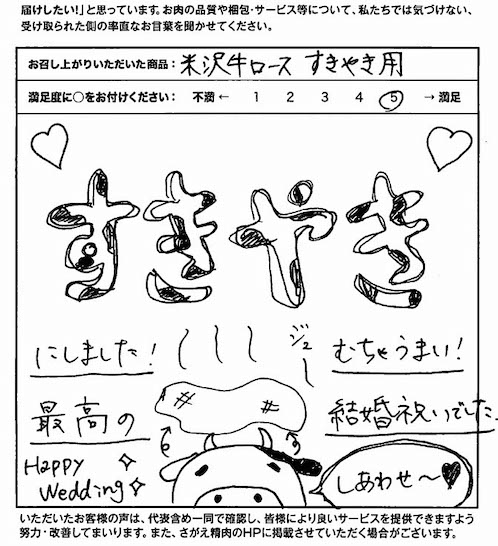 届けしたい!」と思っています。お肉の品質や梱包・サービス等について、私たちでは気づけない、
受け取られた側の率直なお言葉を聞かせてください。
お召し上がりいただいた商品: 米沢牛ロース すきやき用
満足度に○をお付けください: 不満 ← 1 2 3 4 5 → 満足
すきやき
ジュー
にしました! むちゃうまい!
最高の 結婚祝いでした。
Happy
Wedding
しあわせ〜♥
いただいたお客様の声は、代表含め一同で確認し、皆様により良いサービスを提供できますよう
努力・改善してまいります。また、さがえ精肉のHPに掲載させていただく場合がございます。